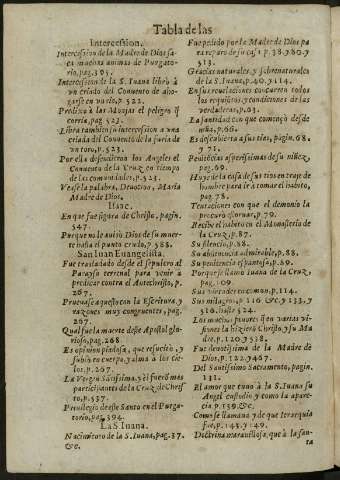 Tabla de las
Intercession.
Intercession de la Madre de Dios sa-
ca muchas animas de Purgato-
rio, pag. 395.
Intercession de la S. Iuana libro à
vn criado del Convento de aho-
garse en vn rio, p. 522.
Predixo à las Monjas el peligro q̃
corria, pag. 523.
Libra tambien su intercession a vna
criada del Convento de la furia de
vn toro, p. 523.
Por ella defendieron los Angeles el
Convento de la Cruz en tiempo
de las comunidades, p. 523.
Vease la palabra, Devocion, Maria
Madre de Dios.
Isaac.
En que fue figura de Christo, pagin.
547.
Porque no le avisò Dios de su muer-
te hasta el punto crudo, p. 588.
San Iuan Euangelista.
Fue trasladado desde el sepulcro al
Parayso terrenal para venir à
predicar contra el Antechristo, p.
267.
Pruevase aquesto con la Escritura y
razones muy congruentes, pag.
267.
Qual fue la muerte deste Apostol glo-
rioso, pag. 268.
Es opinion piadosa, que resucitò, y
subiò en cuerpo, y alma à los cie-
los, p. 267.
La Virgen Santissima, y èl fuerõ mas
participantes de la Cruz de Chris-
to, p. 537.
Privilegio deste Santo en el Purga-
torio, pag. 394.
La S. Iuana.
Nacimiento de la S. Iuana, pag. 37.
&c.
Fue pedido por la Madre de Dios pa
ra reparo de su casa p. 38. y 80. y
513.
Gracias naturales, y sobrenaturales
de la S. Iuana, p. 40. y 114.
En sus revelaciones concurren todos
los requisitos, y condiciones de las
verdaderas, p. 63.
La santidad con que començò desde
niña, p. 66.
Es descubierta a sus tias, pagin. 68.
y 71.
Penitẽcias asperissimas de su niñez,
pag. 69.
Huye de la casa de sus tios en traje de
hombre para ir à tomar el habito,
pag. 78.
Tentaciones con que el demonio la
procurò estorvar, p. 79.
Recibe el habito en el Monasterio de
la Cruz, p. 87.
Su silencio, p. 88.
Su abstinencia admirable, p. 88.
Su penitencia espantosa, p. 89.
Porque se llamò Iuana de la Cruz,
pag. 109.
Sus virtudes en comun, p. 114.
Sus milagros, p. 116 &c. y 133, y
516. hasta 524.
Los muchos favores q̃ en varias vi-
siones la hizierõ Christo, y su Ma
dre, p. 120. y 538.
Fue devotissima de la Madre de
Dios, p. 122. y 467.
Del Santissimo Sacramento, pagin.
131.
El amor que tuvo à la S. Iuana su
Angel custodio y como la apare-
cia p. 139. &c.
Como se llamava, y de que ierarquia
fue, p. 145. y 149.
Doctrina maravillosa, que à la san-
ta